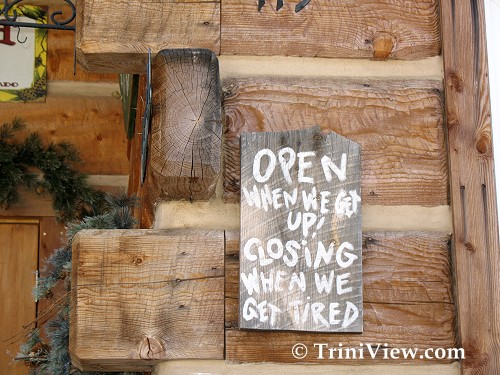 OPEN
WHEN WE GET
UP!
CLOSING
WHEN WE
GET TIRED
© TriniView.com